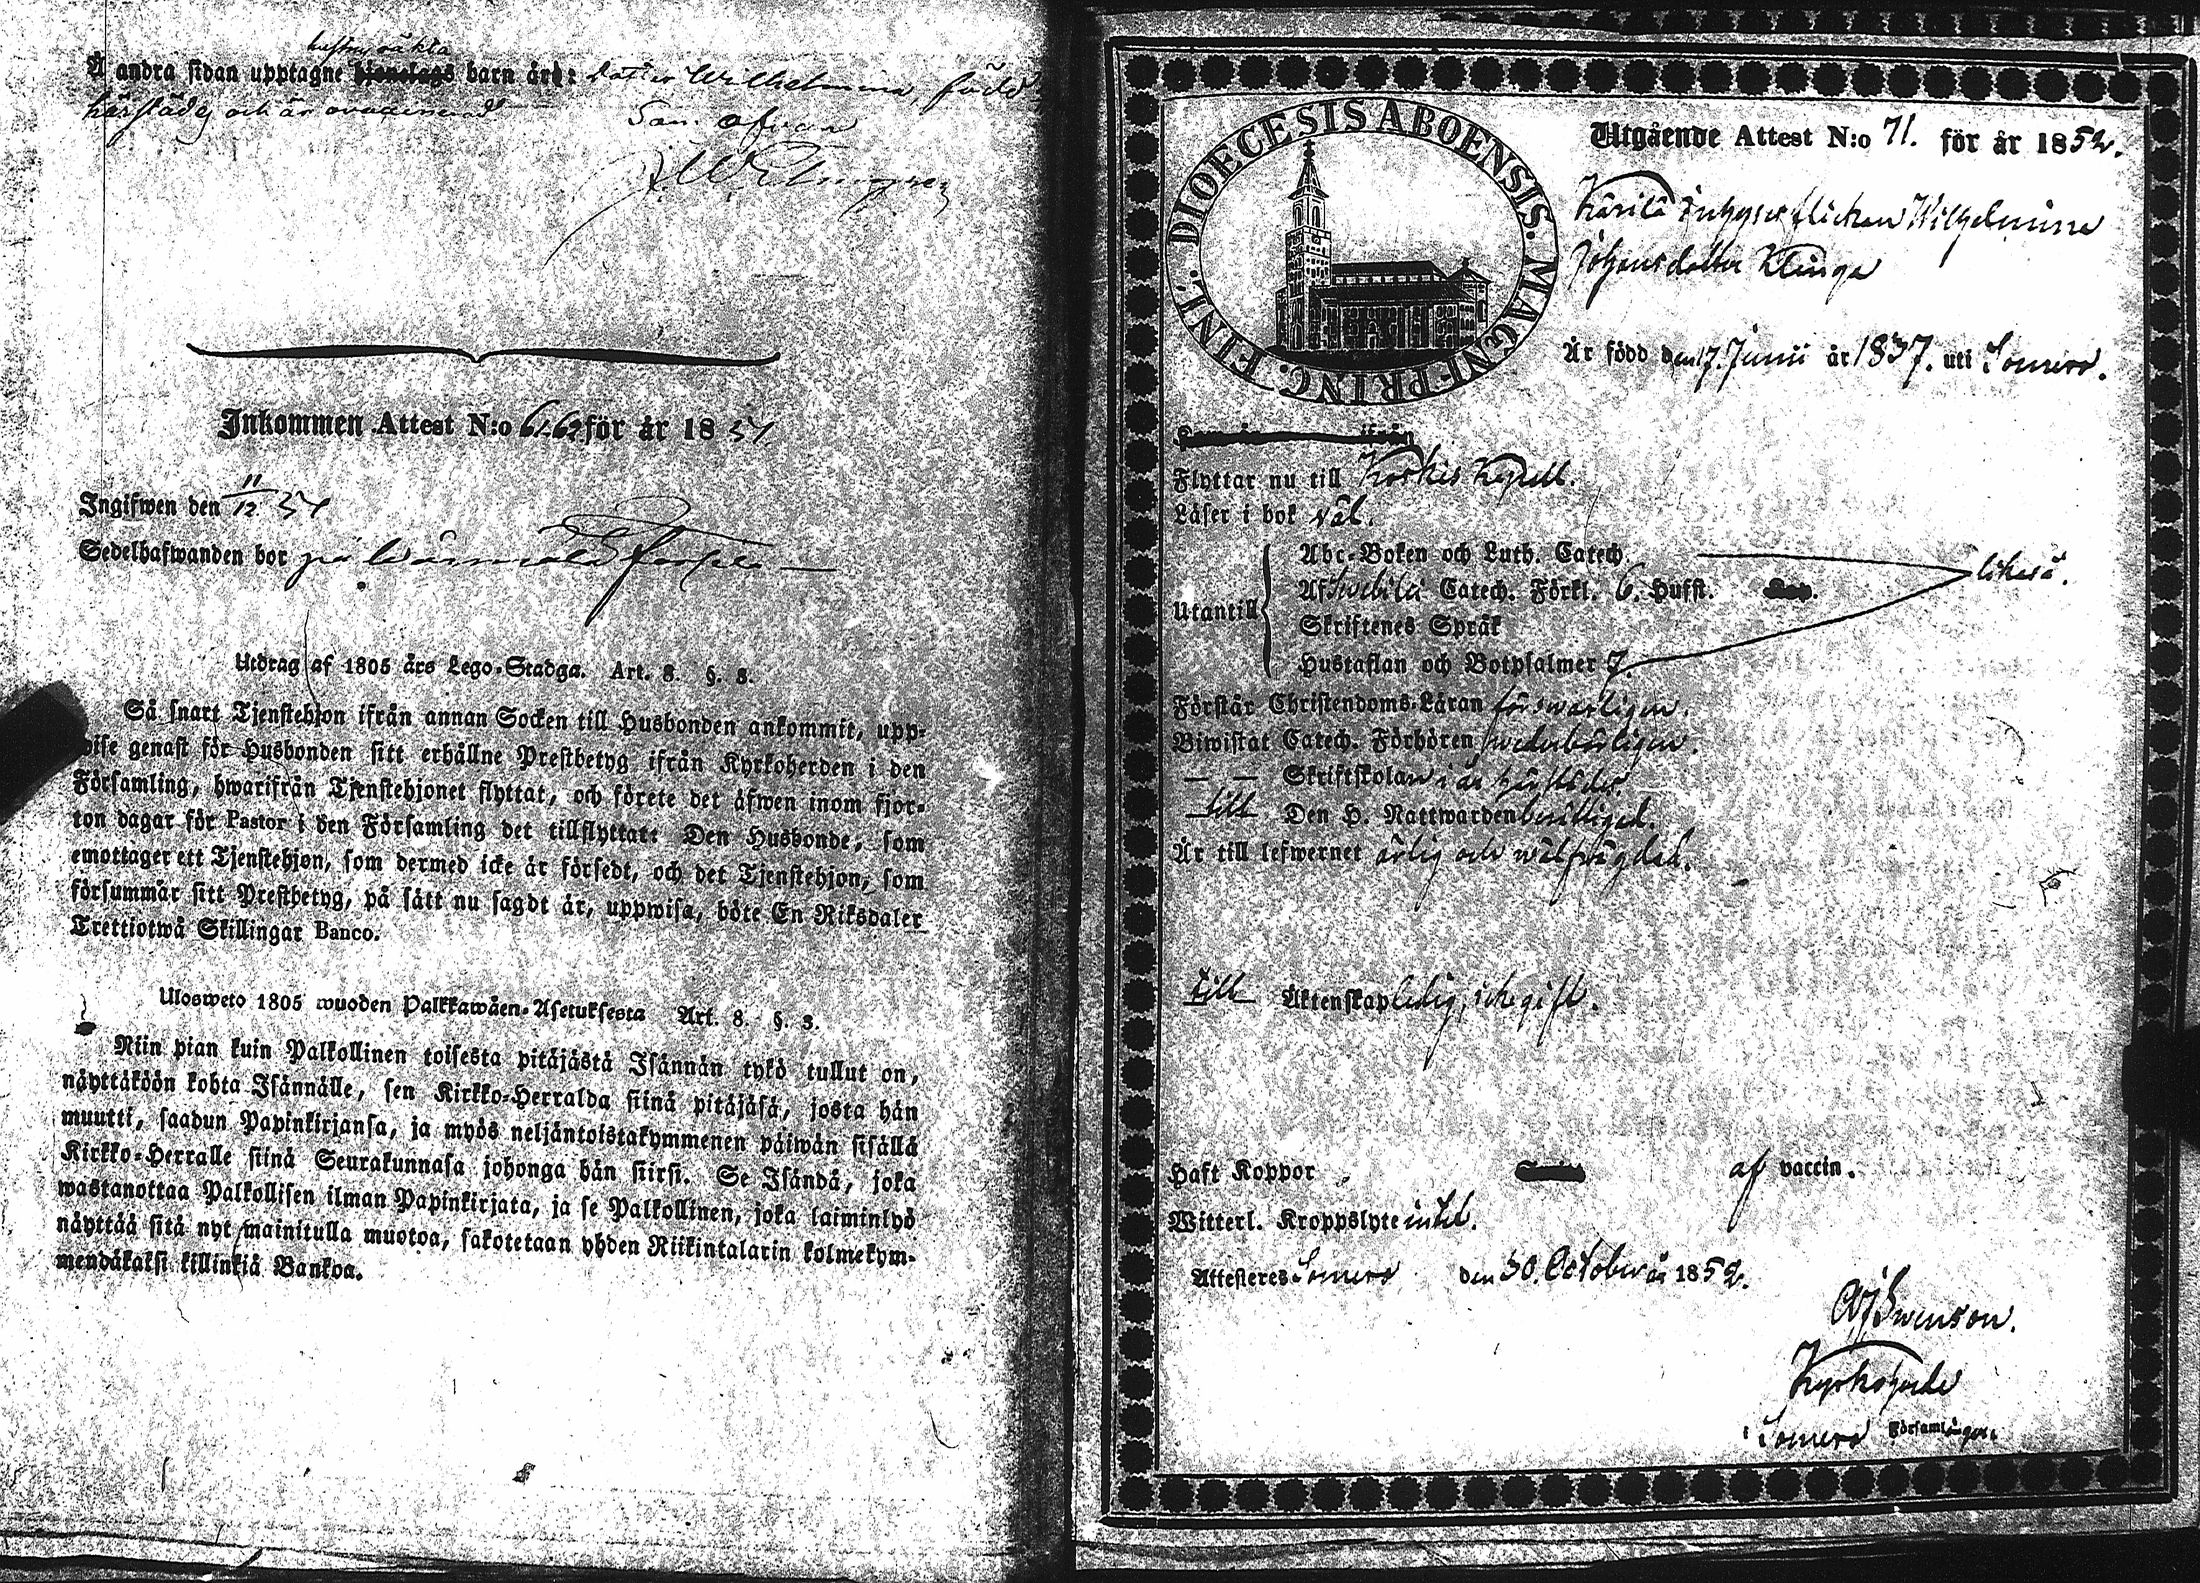 hustrus äkta
Å andra sidan upptagne hjonelags barn är: dotter Wilhelmina, född
härstädes och är ovaccinerad
Som ofvan
Inkommen Attest N:o 61-62 för år 1854
Ingifwen den 11/12 54
Sedelhafwanden bor på
Utdrag af 1805 års Lego-Stadga. Art. 8. §. 3.
Så snart Tjenstehjon ifrån annan Socken till Husbonden ankommit, upp-
wise genast för Husbonden sitt erhållne Prestbetyg ifrån Kyrkoherden i den
Församling, hwarifrån Tjenstehjonet flyttat, och förete det äfwen inom fjor-
ton dagar för Pastor i den Församling det tillflyttat: Den Husbonde, som
emottager ett Tjenstehjon, som dermed icke är försedt, och det Tjenstehjon, som
försummar sitt Prestbetyg, på sätt nu sagdt är, uppwisa, böte En Riksdaler
Trettiotwå Skillingar Banco.
Ulosweto 1805 wuoden Palkkawäen-Asetuksesta Art. 8. §. 3.
Niin pian kuin Palkollinen toisesta pitäjästä Isännän tykö tullut on,
näyttäköön kohta Isännälle, sen Kirkko-Herralda siinä pitäjäsä, josta hän
muutti, saadun Papinkirjansa, ja myös neljäntoistakymmenen päiwän sisällä
Kirkko-Herralle siinä Seurakunnasa johonga hän siirsi. Se Isändä, joka
wastanottaa Palkollisen ilman Papinkirjata, ja se Palkollinen, joka laiminlyö
näyttää sitä nyt mainitulla muotoa, sakotetaan yhden Riikintalarin kolmekym-
mendäkaksi killinkiä Bankoa.
DIOECESIS ABOENSIS. MAGNI PRINC. FINL.
Utgående Attest N:o 71. för år 1852.
Inhyses flickan Wilhelmina
Johansdotter Klinga
Är född den 17. Junii år 1837. uti Somero.
Flyttar nu till Koskis Kapell.
Läser i bok väl.
Utantill
Abc-Boken och Luth. Catech.
Af Swebilii Catech. Förkl. 6. Hufst.
likaså.
Skriftenes Språk
Hustaflan och Botpsalmer 7.
Förstår Christendoms-Läran försvarligen.
Biwistat Catech. Förhören wederbörligen.
— — Skriftskolan i år härstädes.
till Den H. Nattwarden berättigad.
Är till lefwernet ärlig och wälfrägdad.
till Äktenskap ledig, icke gift.
Haft Koppor af vaccin.
Witterl. Kroppslyte intet.
Attesteres Somero den 30. October år 1852.
AJSwenson.
Kyrkoherde
i Somero Församlingar.